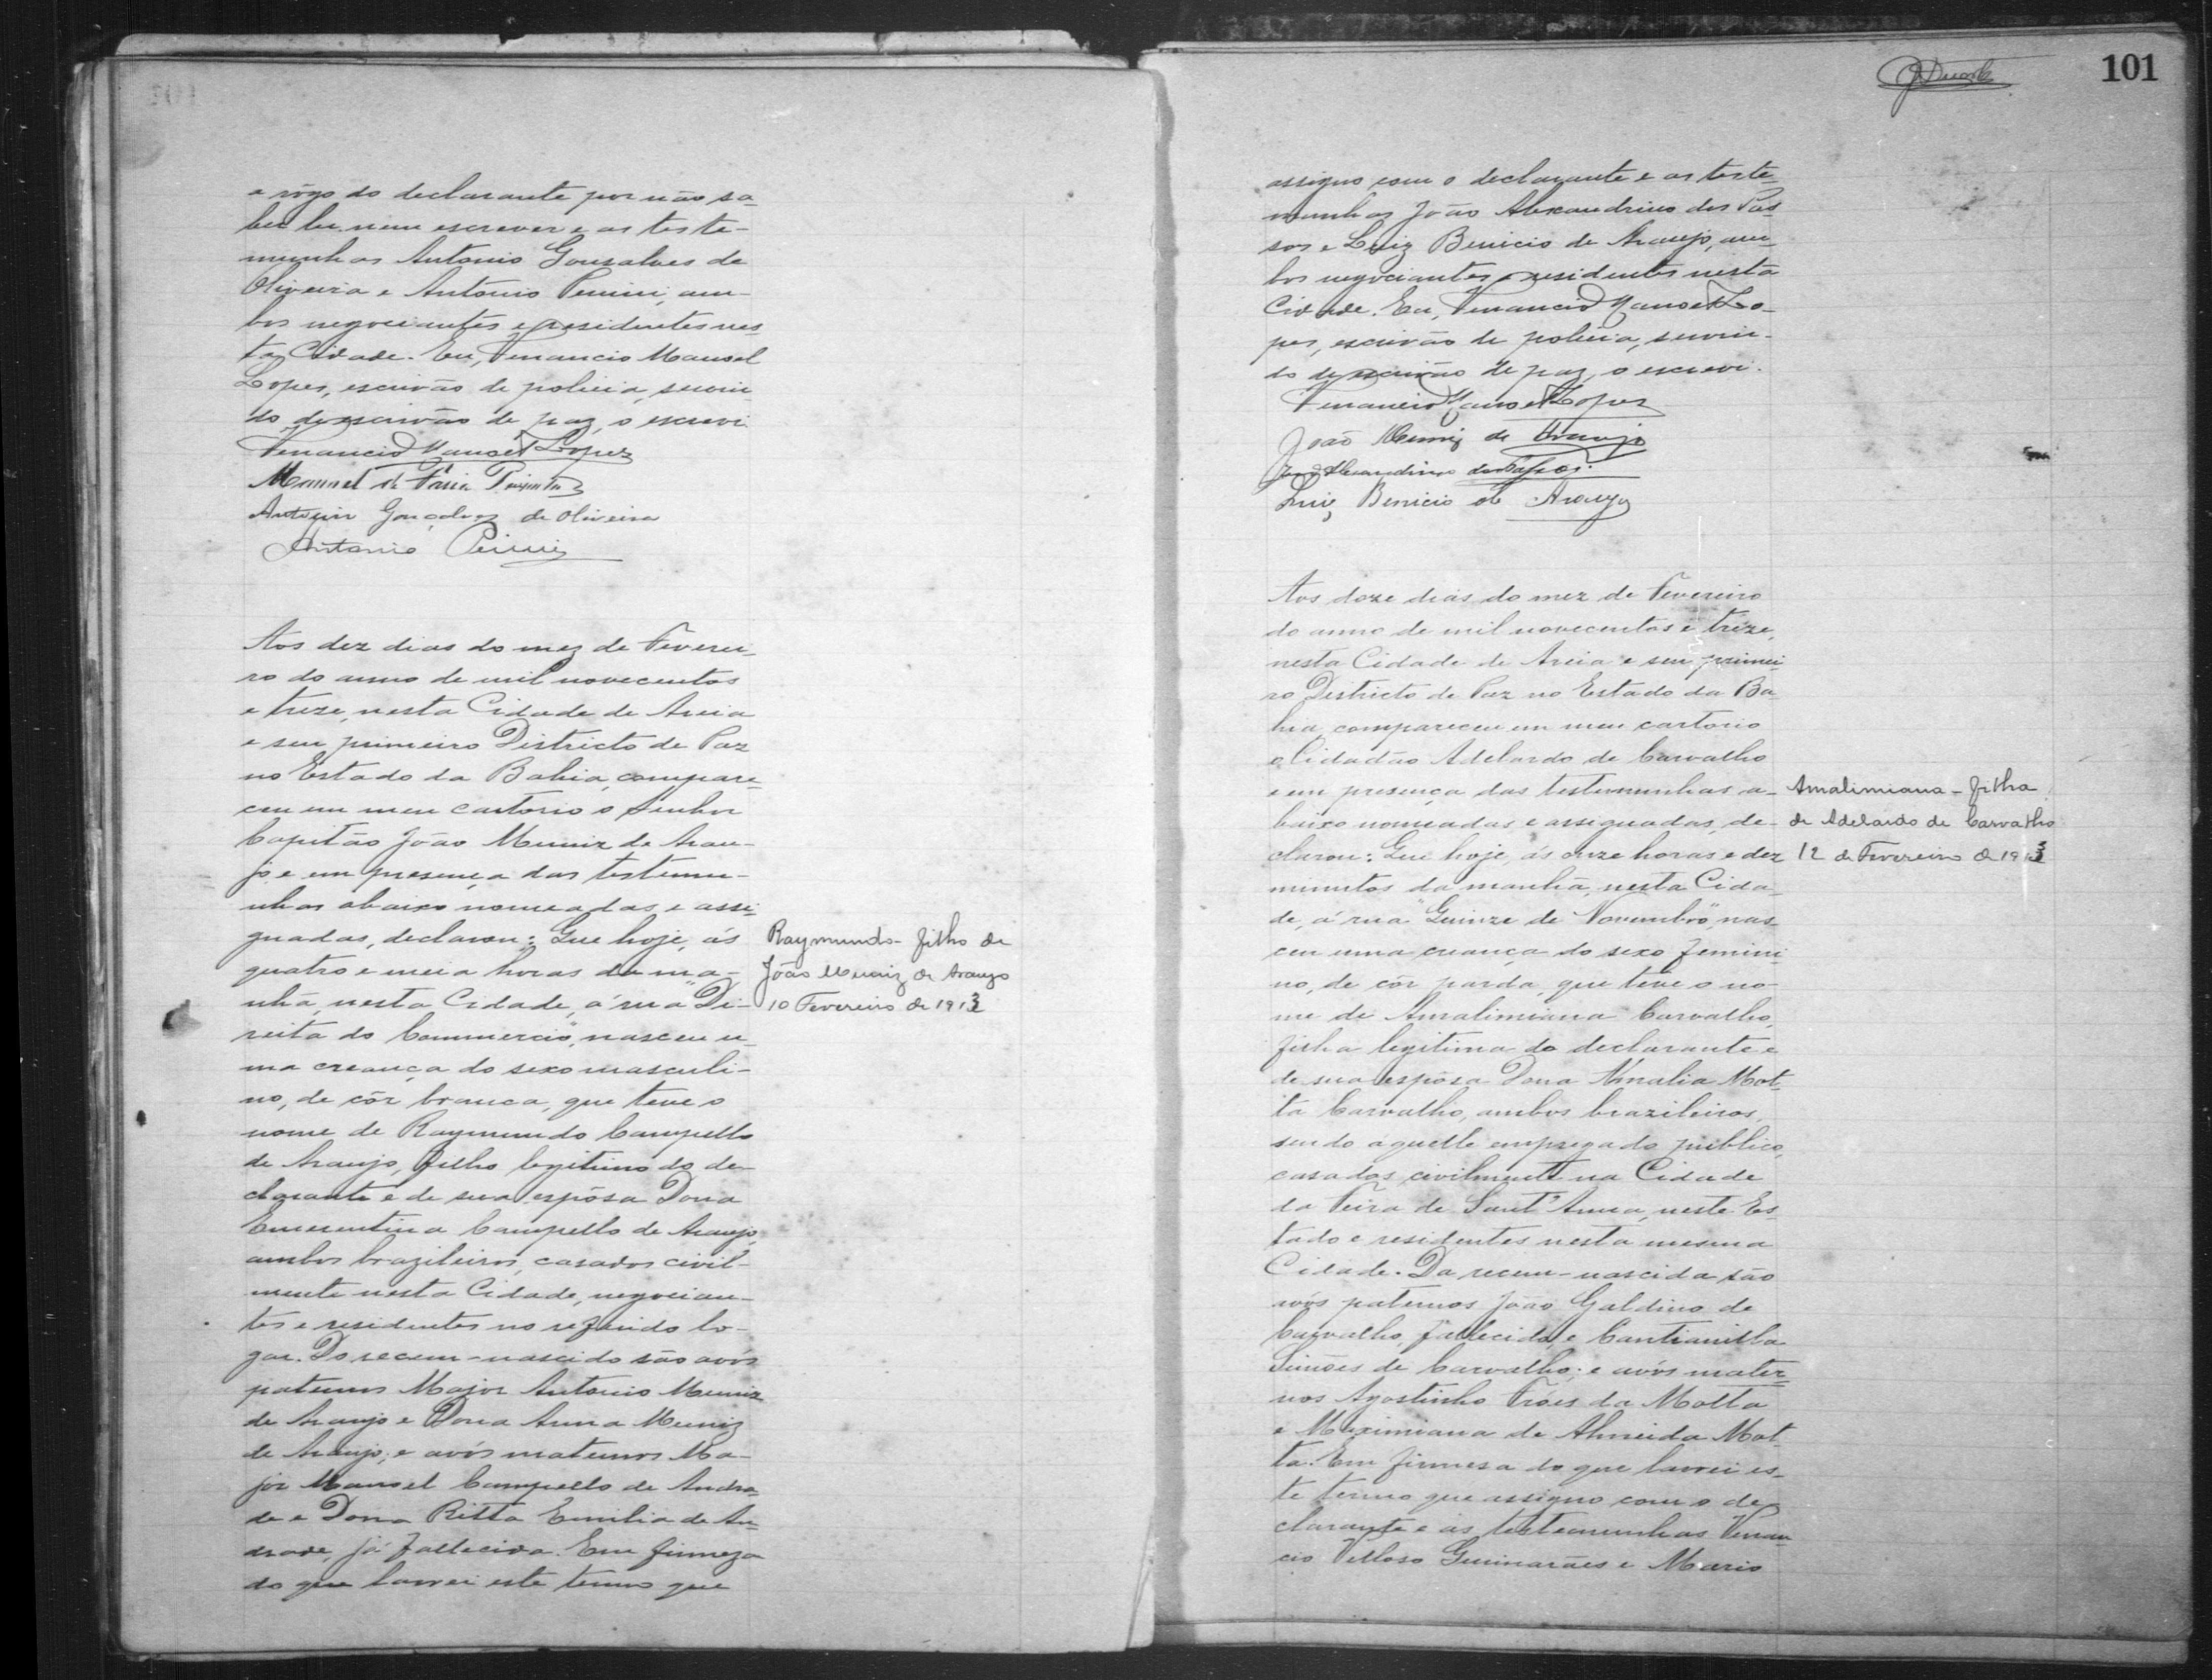 a rôgo do declarante por não sa-
ber ler nem escrever e as teste-
munhas Antonio Gonsalves de
Oliveira e Antônio Penini, am-
bos negociantes e residentes nes-
ta Cidade. Eu, Venancio Manoel
Lopes, escrivão de policia, servin-
do de escrivão de paz, o escrevi.
Venancio Manoel Lopes
Manuel de Faria
Antonio Gonçalves de Oliveira
Antonio Penini
Aos dez dias do mez de Feverei-
ro do anno de mil novecentos
e treze, nesta Cidade de Areia
e seu primeiro Districto de Paz
no Estado da Bahia, compare-
ceu em meu cartorio o Senhor
Capitão João Muniz de Arau-
jo e em presença das testemu-
nhas abaixo nomeadas e assi-
gnadas, declarou: Que hoje, ás
quatro e meia horas da ma-
nhã, nesta Cidade, á rua "Di-
reita do Commercio", nasceu u-
ma creança do sexo masculi-
no, de côr branca, que teve o
nome de Raymundo Campello
de Araujo, filho legitimo do de-
clarante e de sua espôsa Dona
Emerentina Campello de Araujo,
ambos brazileiros, casados civil-
mente nesta Cidade, negocian-
tes e residentes no referido lo-
gar. Do recem-nascido são avós
paternos Major Antonio Muniz
de Araujo e Dona Anna Muniz
de Araujo; e avós maternos Ma-
jor Manoel Campello de Andra-
de e Dona Ritta Emilia de An-
drade, já fallecida. Em firmeza
do que lavrei este termo que
Raymundo - filho de
João Muniz de Araujo
10 Fevereiro de 1913
101
assigno com o declarante e as teste-
munhas João Alexandrino dos Pas-
sos e Luiz Benicio de Araujo, am-
bos negociantes e residentes nesta
Cidade. Eu, Venancio Manoel Lo-
pes, escrivão de policia, servin-
do de escrivão de paz, o escrevi.
Venancio Manoel Lopes
João Muniz de Araujo
João Alexandrino dos Passos.
Luiz Benicio de Araujo
Aos doze dias do mez de Fevereiro
do anno de mil novecentos e treze,
nesta Cidade de Areia e seu primei-
ro Districto de Paz no Estado da Ba-
hia, compareceu em meu cartorio
o Cidadão Adelardo de Carvalho
e em presença das testemunhas a-
baixo nomeadas e assignadas, de-
clarou: Que hoje, ás onze horas e dez
minutos da manhã, nesta Cida-
de, á rua "Quinze de Novembro", nas-
ceu uma creança do sexo femini-
no, de côr parda, que teve o no-
me de Amalimiana Carvalho,
filha legitima do declarante e
de sua espôsa Dona Amalia Mot-
ta Carvalho, ambos brazileiros,
sendo aquelle empregado publico,
casados civilmente na Cidade
da Feira de Sant'Anna, neste Es-
tado e residentes nesta mesma
Cidade. Da recem-nascida são
avós paternos João Galdino de
Carvalho, fallecido, e Cantianilla
Simões de Carvalho; e avós mater-
nos Agostinho Fróes da Motta
e Maximiana de Almeida Mot-
ta. Em firmesa do que lavrei es-
te termo que assigno com o de-
clarante e as testemunhas Venan-
cio Velloso Guimarães e Mario
Amalimiana - filha
de Adelardo de Carvalho
12 de Fevereiro de 1913